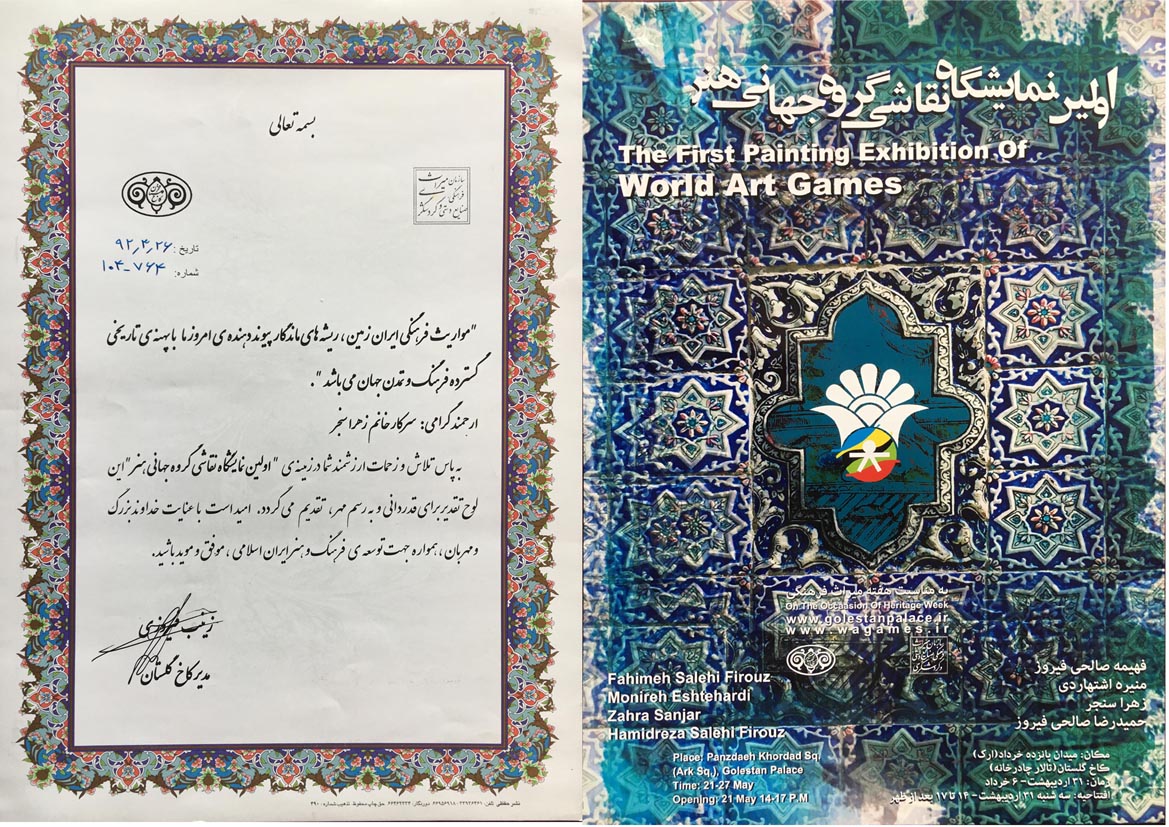 بسمه تعالی
سازمان میراث
فرهنگی
صنایع دستی و گردشگری
تاریخ: ۹۲٫۴٫۲۶
شماره: ۱۰۴-۷۶۴
"مواریث فرهنگی ایران زمین، ریشه های ماندگار پیوند دهنده ی امروز ما با پهنه ی تاریخی
گسترده فرهنگ و تمدن جهان می باشد".
ارجمند گرامی: سرکار خانم زهرا سنجر
به پاس تلاش و زحمات ارزشمند شما در زمینه ی "اولین نمایشگاه نقاشی گروه جهانی هنر" این
لوح تقدیر برای قدردانی و به رسم مهر، تقدیم می گردد. امید است با عنایت خداوند بزرگ
و مهربان، همواره جهت توسعه ی فرهنگ و هنر ایران اسلامی، موفق و موید باشید.
مدیر کاخ گلستان
اولین نمایشگاه نقاشی گروه جهانی هنر
The First Painting Exhibition Of
World Art Games
به مناسبت هفته میراث فرهنگی
On The Occassion Of Heritage Week
www.golestanpalace.ir
www.wagames.ir
Fahimeh Salehi Firouz
Monireh Eshtehardi
Zahra Sanjar
Hamidreza Salehi Firouz
فهیمه صالحی فیروز
منیره اشتهاردی
زهرا سنجر
حمیدرضا صالحی فیروز
Place: Panzdaeh Khordad Sq.
(Ark Sq.), Golestan Palace
Time: 21-27 May
Opening: 21 May 14-17 P.M
مکان: میدان پانزده خرداد(ارک)
کاخ گلستان(تالار چادرخانه)
زمان: ۳۱ اردیبهشت- ۶ خرداد
افتتاحیه: سه شنبه ۳۱ اردیبهشت- ۱۴ تا ۱۷ بعد از ظهر